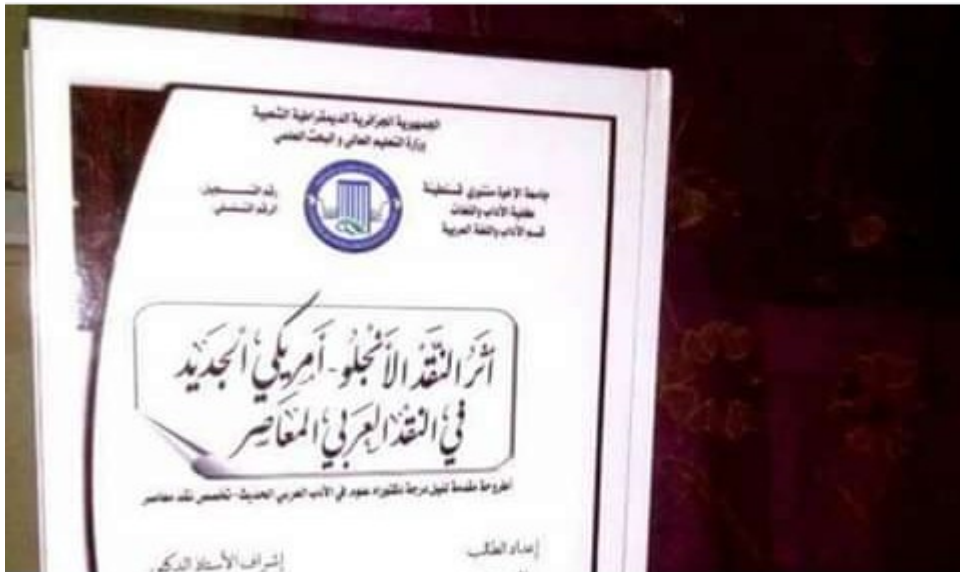 الجمهورية الجزائرية الديمقراطية الشعبية
وزارة التعليم العالي و البحث العلمي
جامعة الإخوة منتوري قسنطينة
كلية الآداب واللغات
قسم الآداب واللغة العربية
رقم التسجيل:
الرقم التسلسلي:
أَثَرُ النَّقْدِ الأَنْجْلُو-أَمْرِيكِي الْجَدِيدِ
فِي النَّقْدِ الْعَرَبِي الْمُعَاصِرِ
أطروحة مقدمة لنيل درجة دكتوراه علوم في الأدب العربي الحديث-تخصص نقد معاصر
إعداد الطالب:
إشراف الأستاذ الدكتور